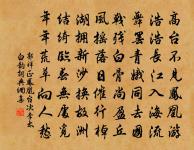 高台不見鳳凰游
浩浩長江入海流
舞罷青娥同去國
戰殘白骨尚盈丘
風搖落日催行棹
湖擁新沙換故洲
結綺臨春無處覓
年年荒草向人愁
郭祥正鳳凰台次李太
白韵詞典網集